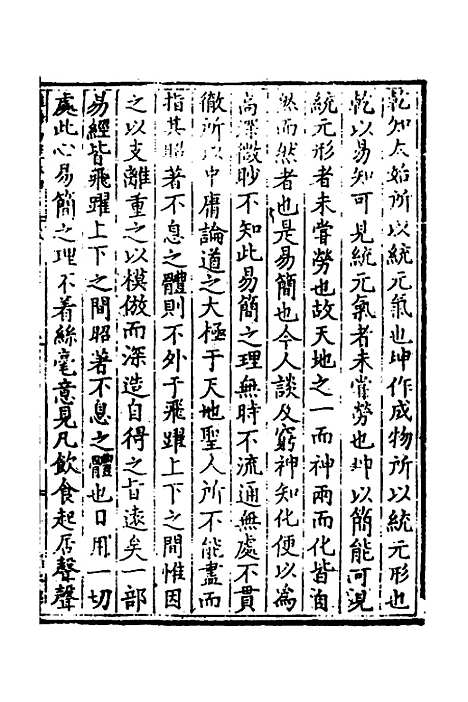 乾知太始所以統元氣也坤作成物所以統元形也
乾以易知可見統元氣者未嘗勞也坤以簡能可見
統元形者未嘗勞也故天地之一而神兩而化皆自
然而然者也是易簡也今人談及窮神知化便以為
高深微眇不知此易簡之理無時不流通無處不貫
徹所以中庸論道之大極于天地聖人所不能盡而
指其昭著不息之體則不外于飛躍上下之間惟因
之以支離重之以模倣而深造自得之旨遠矣一部
易經皆飛躍上下之間昭著不息之體也日用一切
處此心易簡之理不着絲毫意見凡飲食起居聲聲